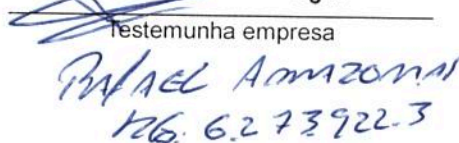 Testemunha empresa
RAFAEL AMAZONAS
RG. 6.273.922.3